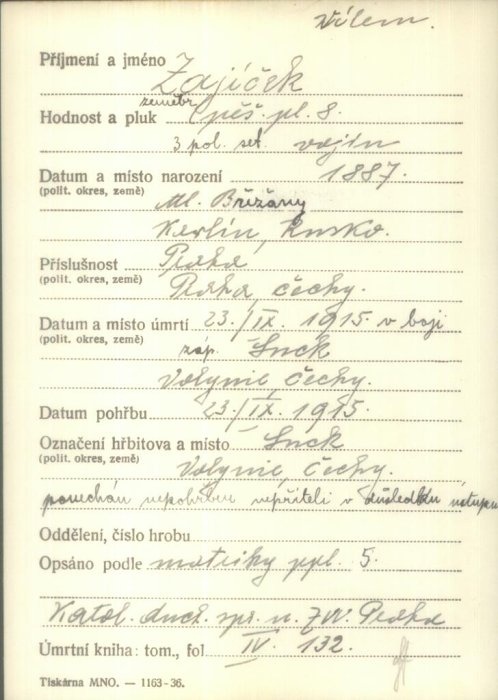 Vilém.
Příjmení a jméno Zajíček
zeměbr.
Hodnost a pluk pěš. pl. 8.
3 pol. set. vojín
Datum a místo narození 1887.
(polit. okres, země) Ml. Břežany
Karlín, Rusko.
Příslušnost Praha
(polit. okres, země) Praha, Čechy.
Datum a místo úmrtí 23./IX. 1915 v boji
(polit. okres, země) záp. Luck
Volynie, Čechy.
Datum pohřbu 23./IX. 1915.
Označení hřbitova a místo Luck
(polit. okres, země) Volynie, Čechy.
ponechán nepohřben nepříteli v důsledku ústupu
Oddělení, číslo hrobu
Opsáno podle matriky ppl. 5.
Katol. duch. spr. u. ZVV. Praha
Úmrtní kniha: tom., fol IV. 132.
Tiskárna MNO. — 1163-36.